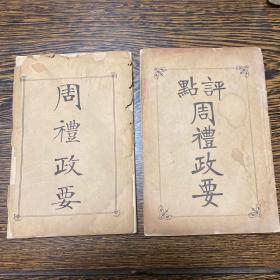 周禮政要
評點
周禮政要